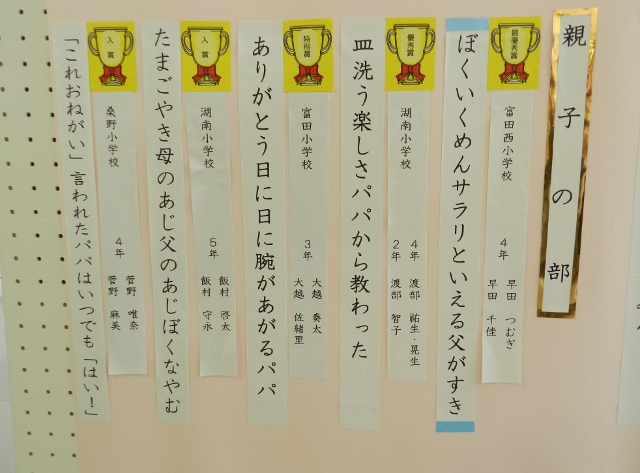 親子の部
最優秀賞
ぼくいくめんサラリといえる父がすき
富田西小学校 4年 早田 つむぎ
早田 千佳
優秀賞
皿洗う楽しさパパから教わった
湖南小学校 4年 渡部 祐生・晃生
2年 渡部 智子
特別賞
ありがとう日に日に腕があがるパパ
富田小学校 3年 大越 奏太
大越 佐緒里
入賞
たまごやき母のあじ父のあじぼくなやむ
湖南小学校 5年 飯村 啓太
飯村 守永
入賞
「これおねがい」言われたパパはいつでも「はい！」
桑野小学校 4年 菅野 唯奈
菅野 麻美